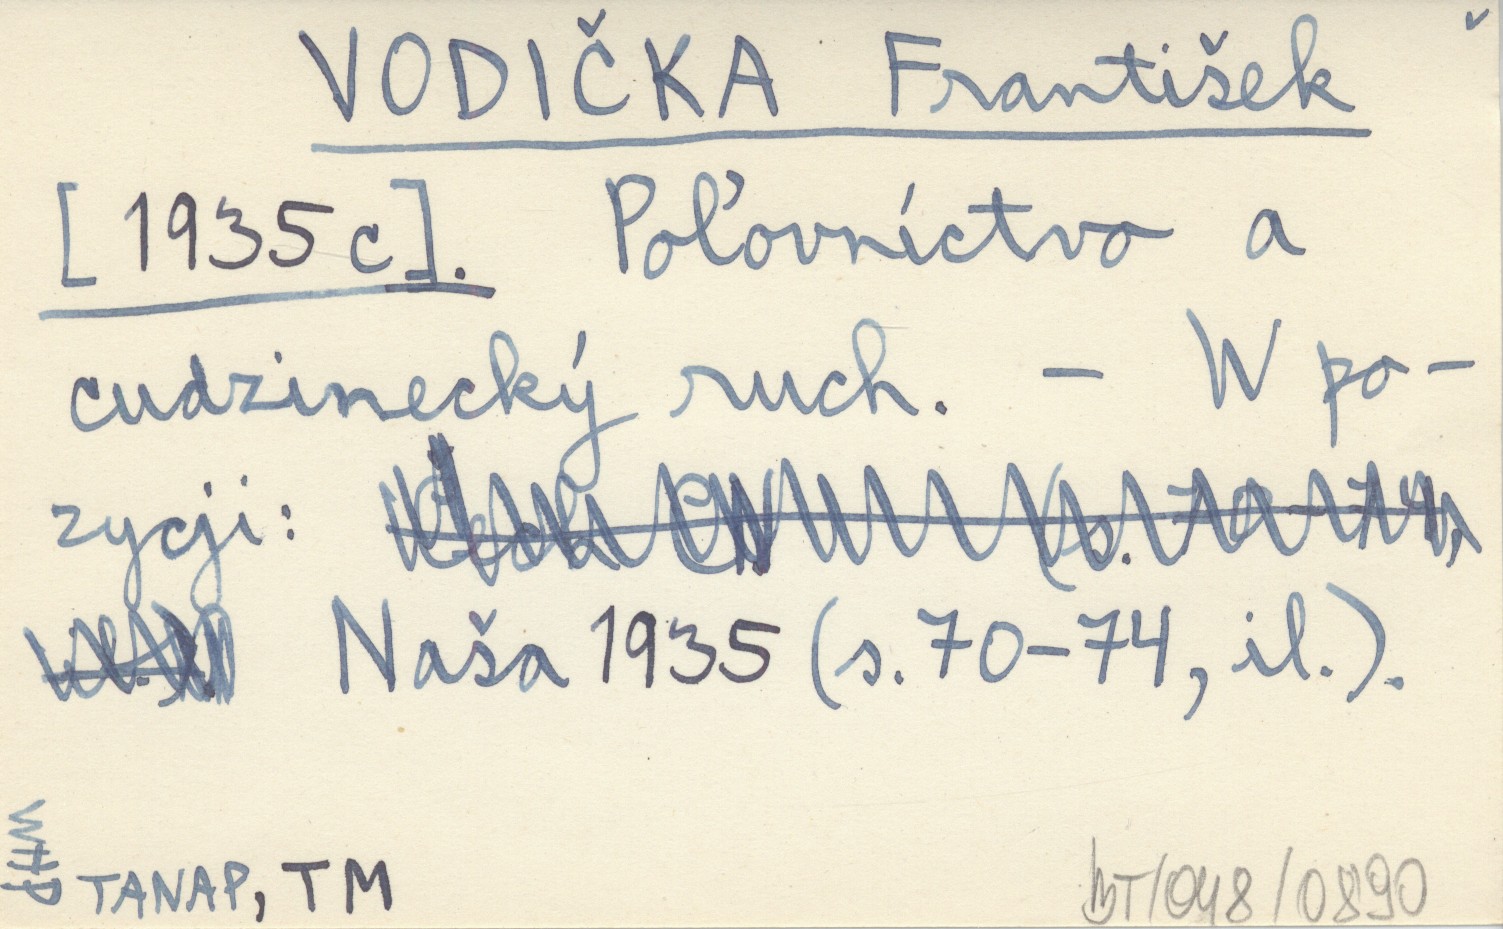 VODIČKA František
[1935c]. Poľovníctvo a
cudzinecký ruch. – W po-
zycji:
Naša 1935 (s. 70–74, il.).
WHP
TANAP, TM
BT/048/0890